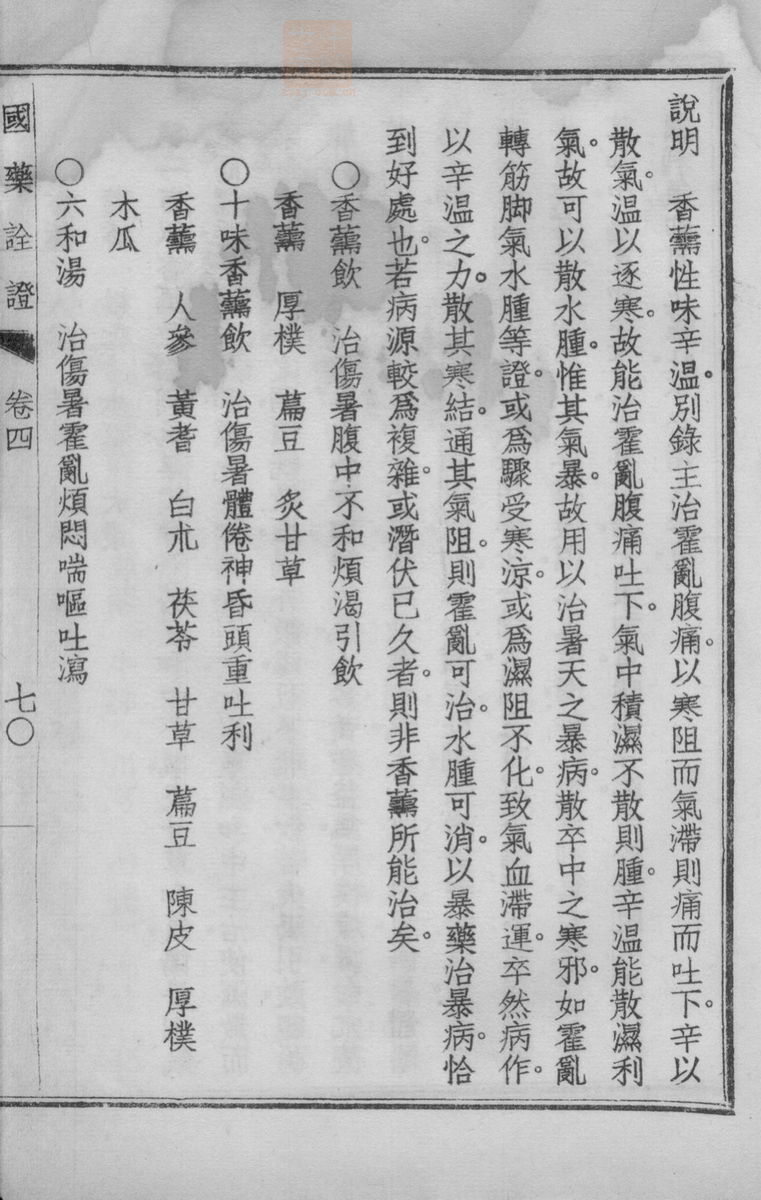 說明　香薷性味辛溫。別錄主治霍亂腹痛。以寒阻而氣滯則痛而吐下。辛以
散氣。溫以逐寒。故能治霍亂腹痛吐下。氣中積濕不散則腫。辛溫能散濕利
氣。故可以散水腫。惟其氣暴。故用以治暑天之暴病。散卒中之寒邪。如霍亂
轉筋脚氣水腫等證。或爲驟受寒涼。或爲濕阻不化。致氣血滯運。卒然病作。
以辛溫之力。散其寒結。通其氣阻。則霍亂可治。水腫可消。以暴藥治暴病。恰
到好處也。若病源較爲複雜。或潛伏已久者。則非香薷所能治矣。
〇香薷飲　治傷暑腹中不和煩渴引飲
香薷　厚樸　萹豆　炙甘草
〇十味香薷飲　治傷暑體倦神昏頭重吐利
香薷　人參　黃耆　白朮　茯苓　甘草　萹豆　陳皮　厚樸
木瓜
〇六和湯　治傷暑霍亂煩悶喘嘔吐瀉
國藥詮證　卷四　七〇